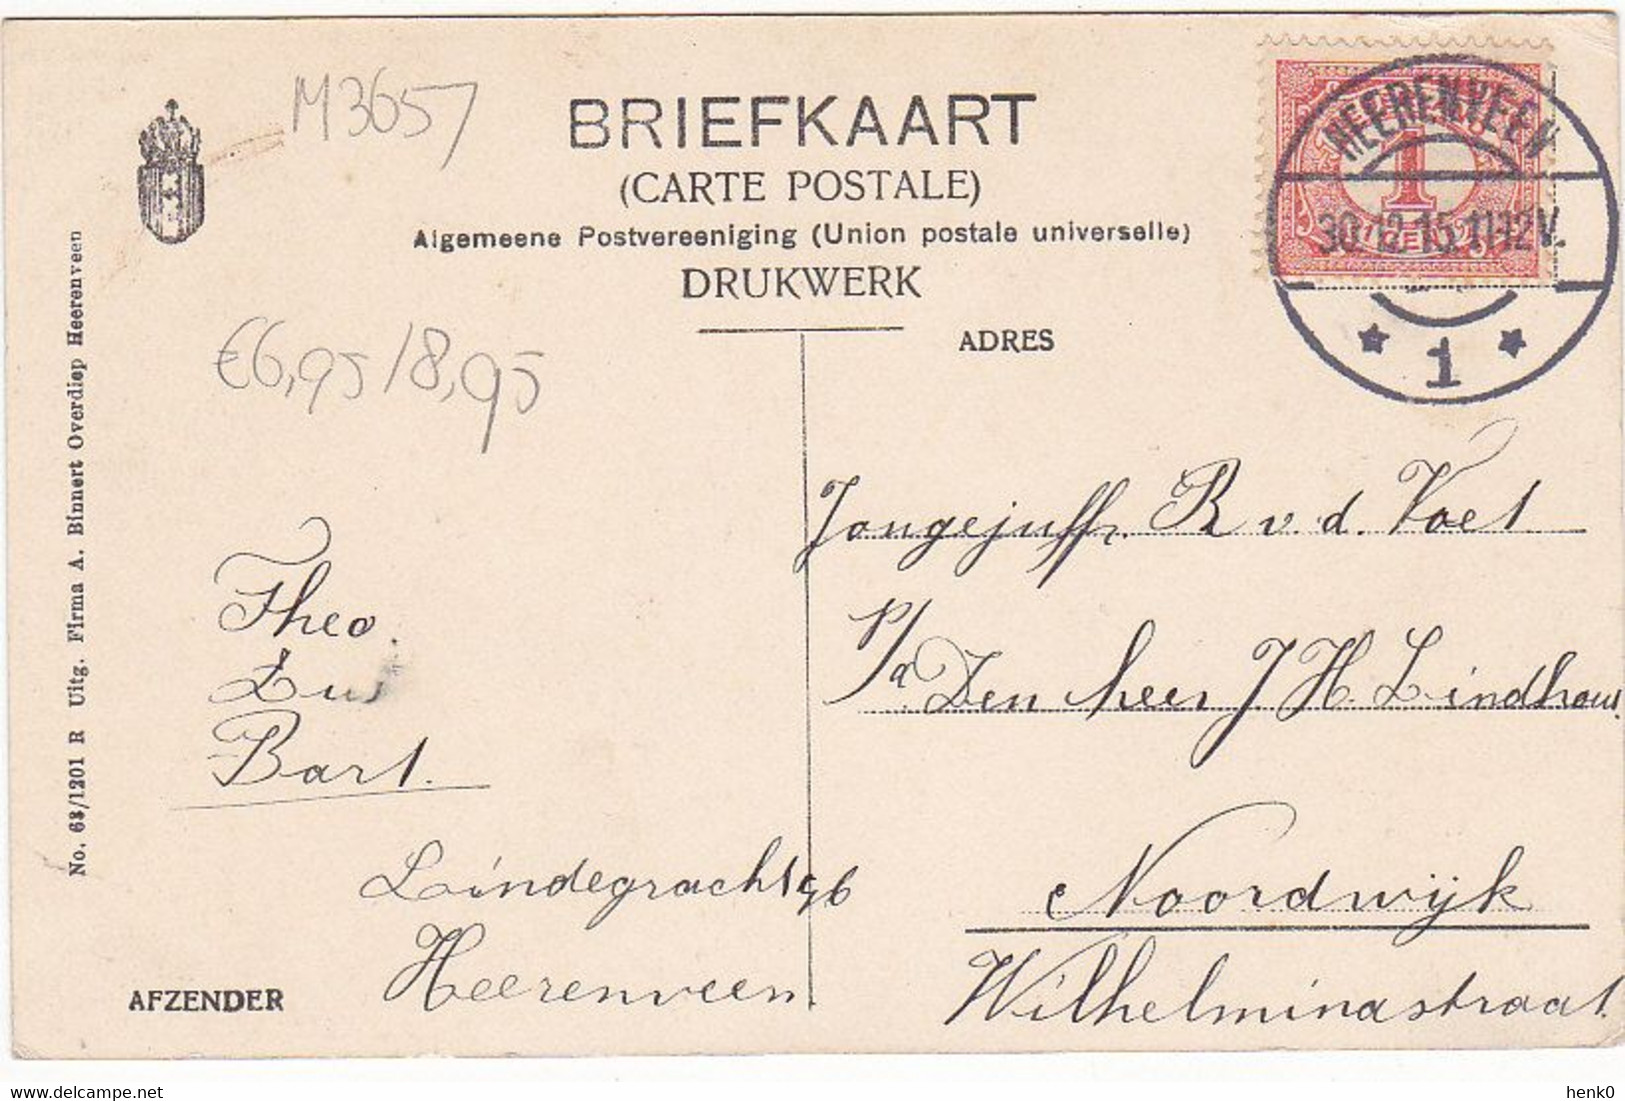 M3657
BRIEFKAART
(CARTE POSTALE)
Algemeene Postvereeniging (Union postale universelle)
DRUKWERK
ADRES
HEERENVEEN
30.12.15.11-12V.
1
1
€6,95/8,95
Jongejuffr. R v. d. Voet
p/a Den heer J H. Lindhout
Noordwijk
Wilhelminastraat
Theo.
Zus
Bart.
Lindegracht
Heerenveen
AFZENDER
No. 68/1201 R Uitg. Firma A. Binnert Overdiep Heerenveen
henk0